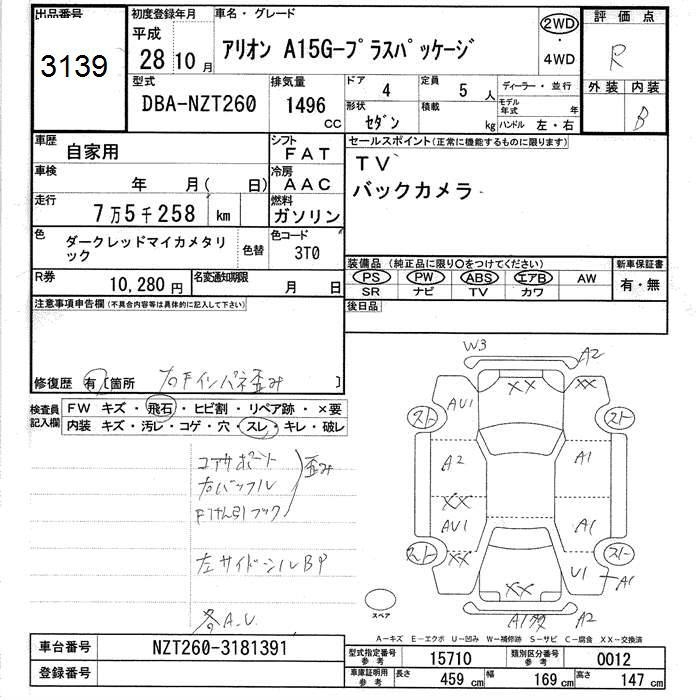 出品番号
3139
初度登録年月
平成
28 10 月
車名・グレード
アリオン A15Gープラスパッケージ
2WD
・
4WD
評価点
R
外装 内装
B
型式
DBA-NZT260
排気量
1496
CC
ドア
4
定員
5 人
形状
セダン
積載
kg
ディーラー・並行
モデル
年式
年
ハンドル 左・右
車歴
自家用
シフト
FAT
車検
年 月( 日)
冷房
AAC
走行
7万5千258 km
燃料
ガソリン
色
ダークレッドマイカメタリ
ック
色替
色コード
3T0
R券
10,280 円
名変通知期限
月 日
セールスポイント(正常に機能するものに限ります)
TV
バックカメラ
装備品 (純正品に限り〇をつけてください)
PS PW ABS エアB AW
SR ナビ TV カワ
新車保証書
有・無
後日品
注意事項申告欄(不具合内容等は具体的に記入して下さい)
修復歴 有 [箇所 右Fインパネ歪み ]
検査員
記入欄
FW キズ・飛石・ヒビ割・リペア跡・×要
内装 キズ・汚レ・コゲ・穴・スレ・キレ・破レ
コアサポート
右バッフル
Fけん引フック
歪み
左サイドシルBP
各A.U.
W3
A2
XX
XX
AU1
スト
スト
A2
A1
XX
AU1
A1
スト
スト
XX
U1
A1
XX
A2
スペア
A−キズ E−エクボ U−凹み W−補修跡 S−サビ C−腐食 XX−交換済
車台番号
NZT260-3181391
登録番号
型式指定番号
参考
15710
類別区分番号
参考
0012
車庫証明用
参考
長さ
459 cm
幅
169 cm
高さ
147 cm